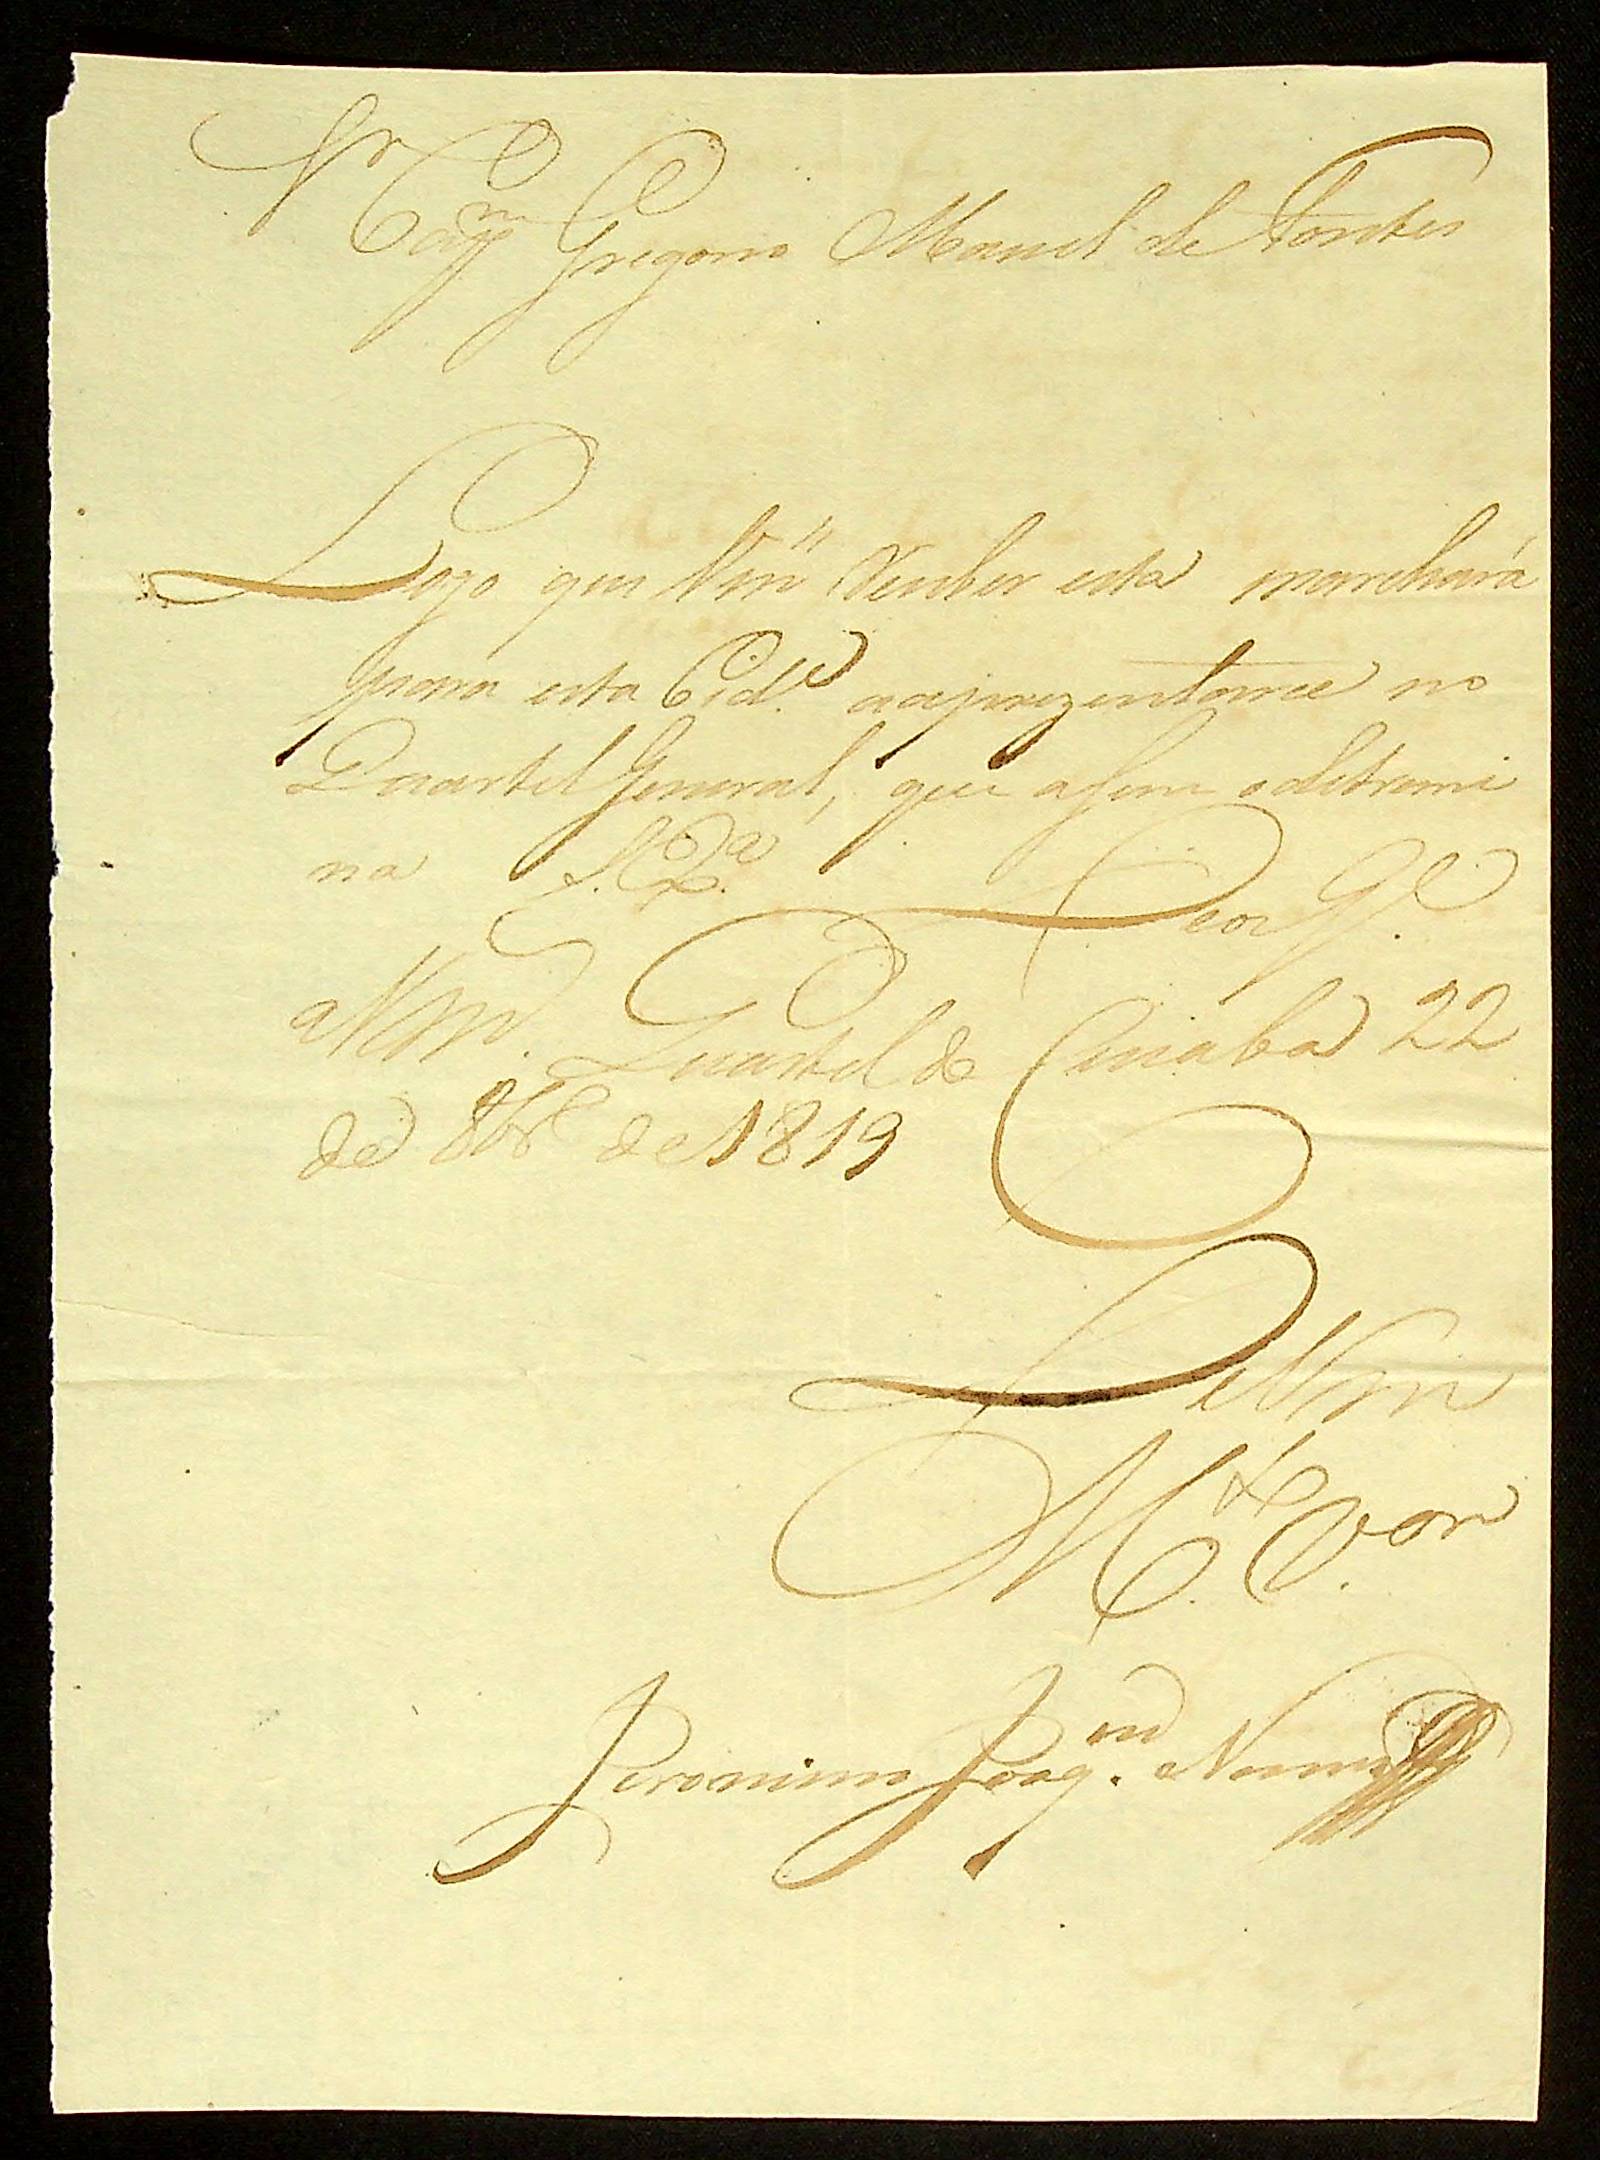 Sr
Capm Gregorio Manoel de Fontes
Logo que Vm Receber esta marchará
para esta Cide. aaprezentarce no
Quartel General, que asim odetremi
na S. Exa. Deos Ge.
a Vm. Quartel de Cuiaba 22
de 8bre de 1819
De Vm
Mto. Vor.
Jeronimo Joaqm. Nunes